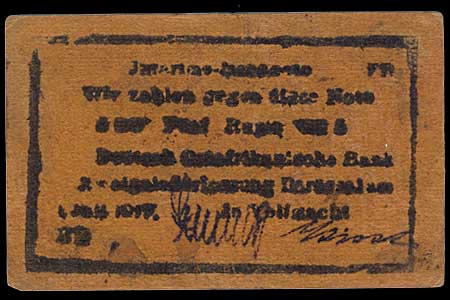 Interims-Banknote
Wir zahlen gegen diese Note
5 Fünf Rupie 5
Deutsch Ostafrikanische Bank
Zweigniederlassung Daressalam
1. Juli 1917. in Vollmacht